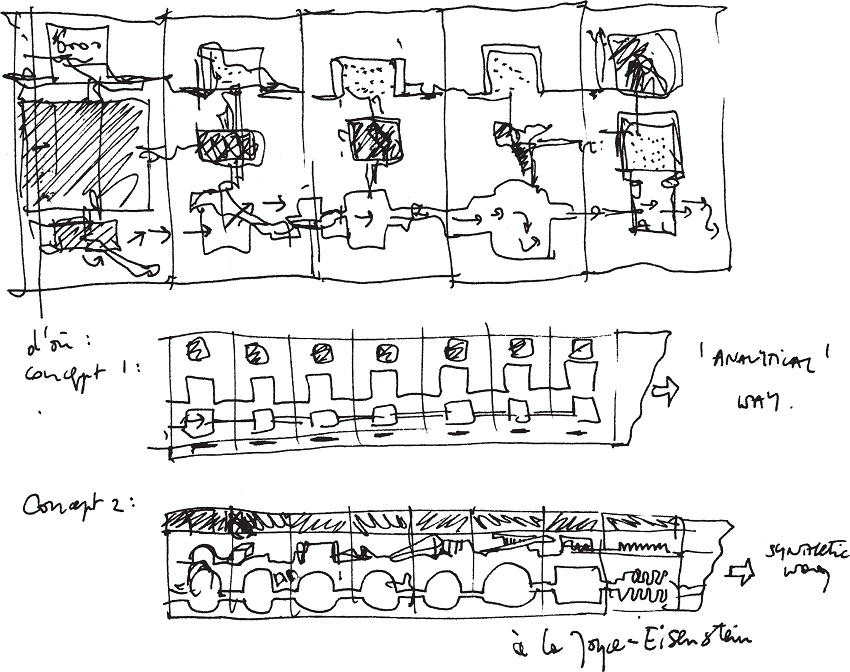 d'où :
concept 1 :
'ANALYTICAL'
WAY.
Concept 2 :
SYNTHETIC
way
à la Joyce-Eisenstein